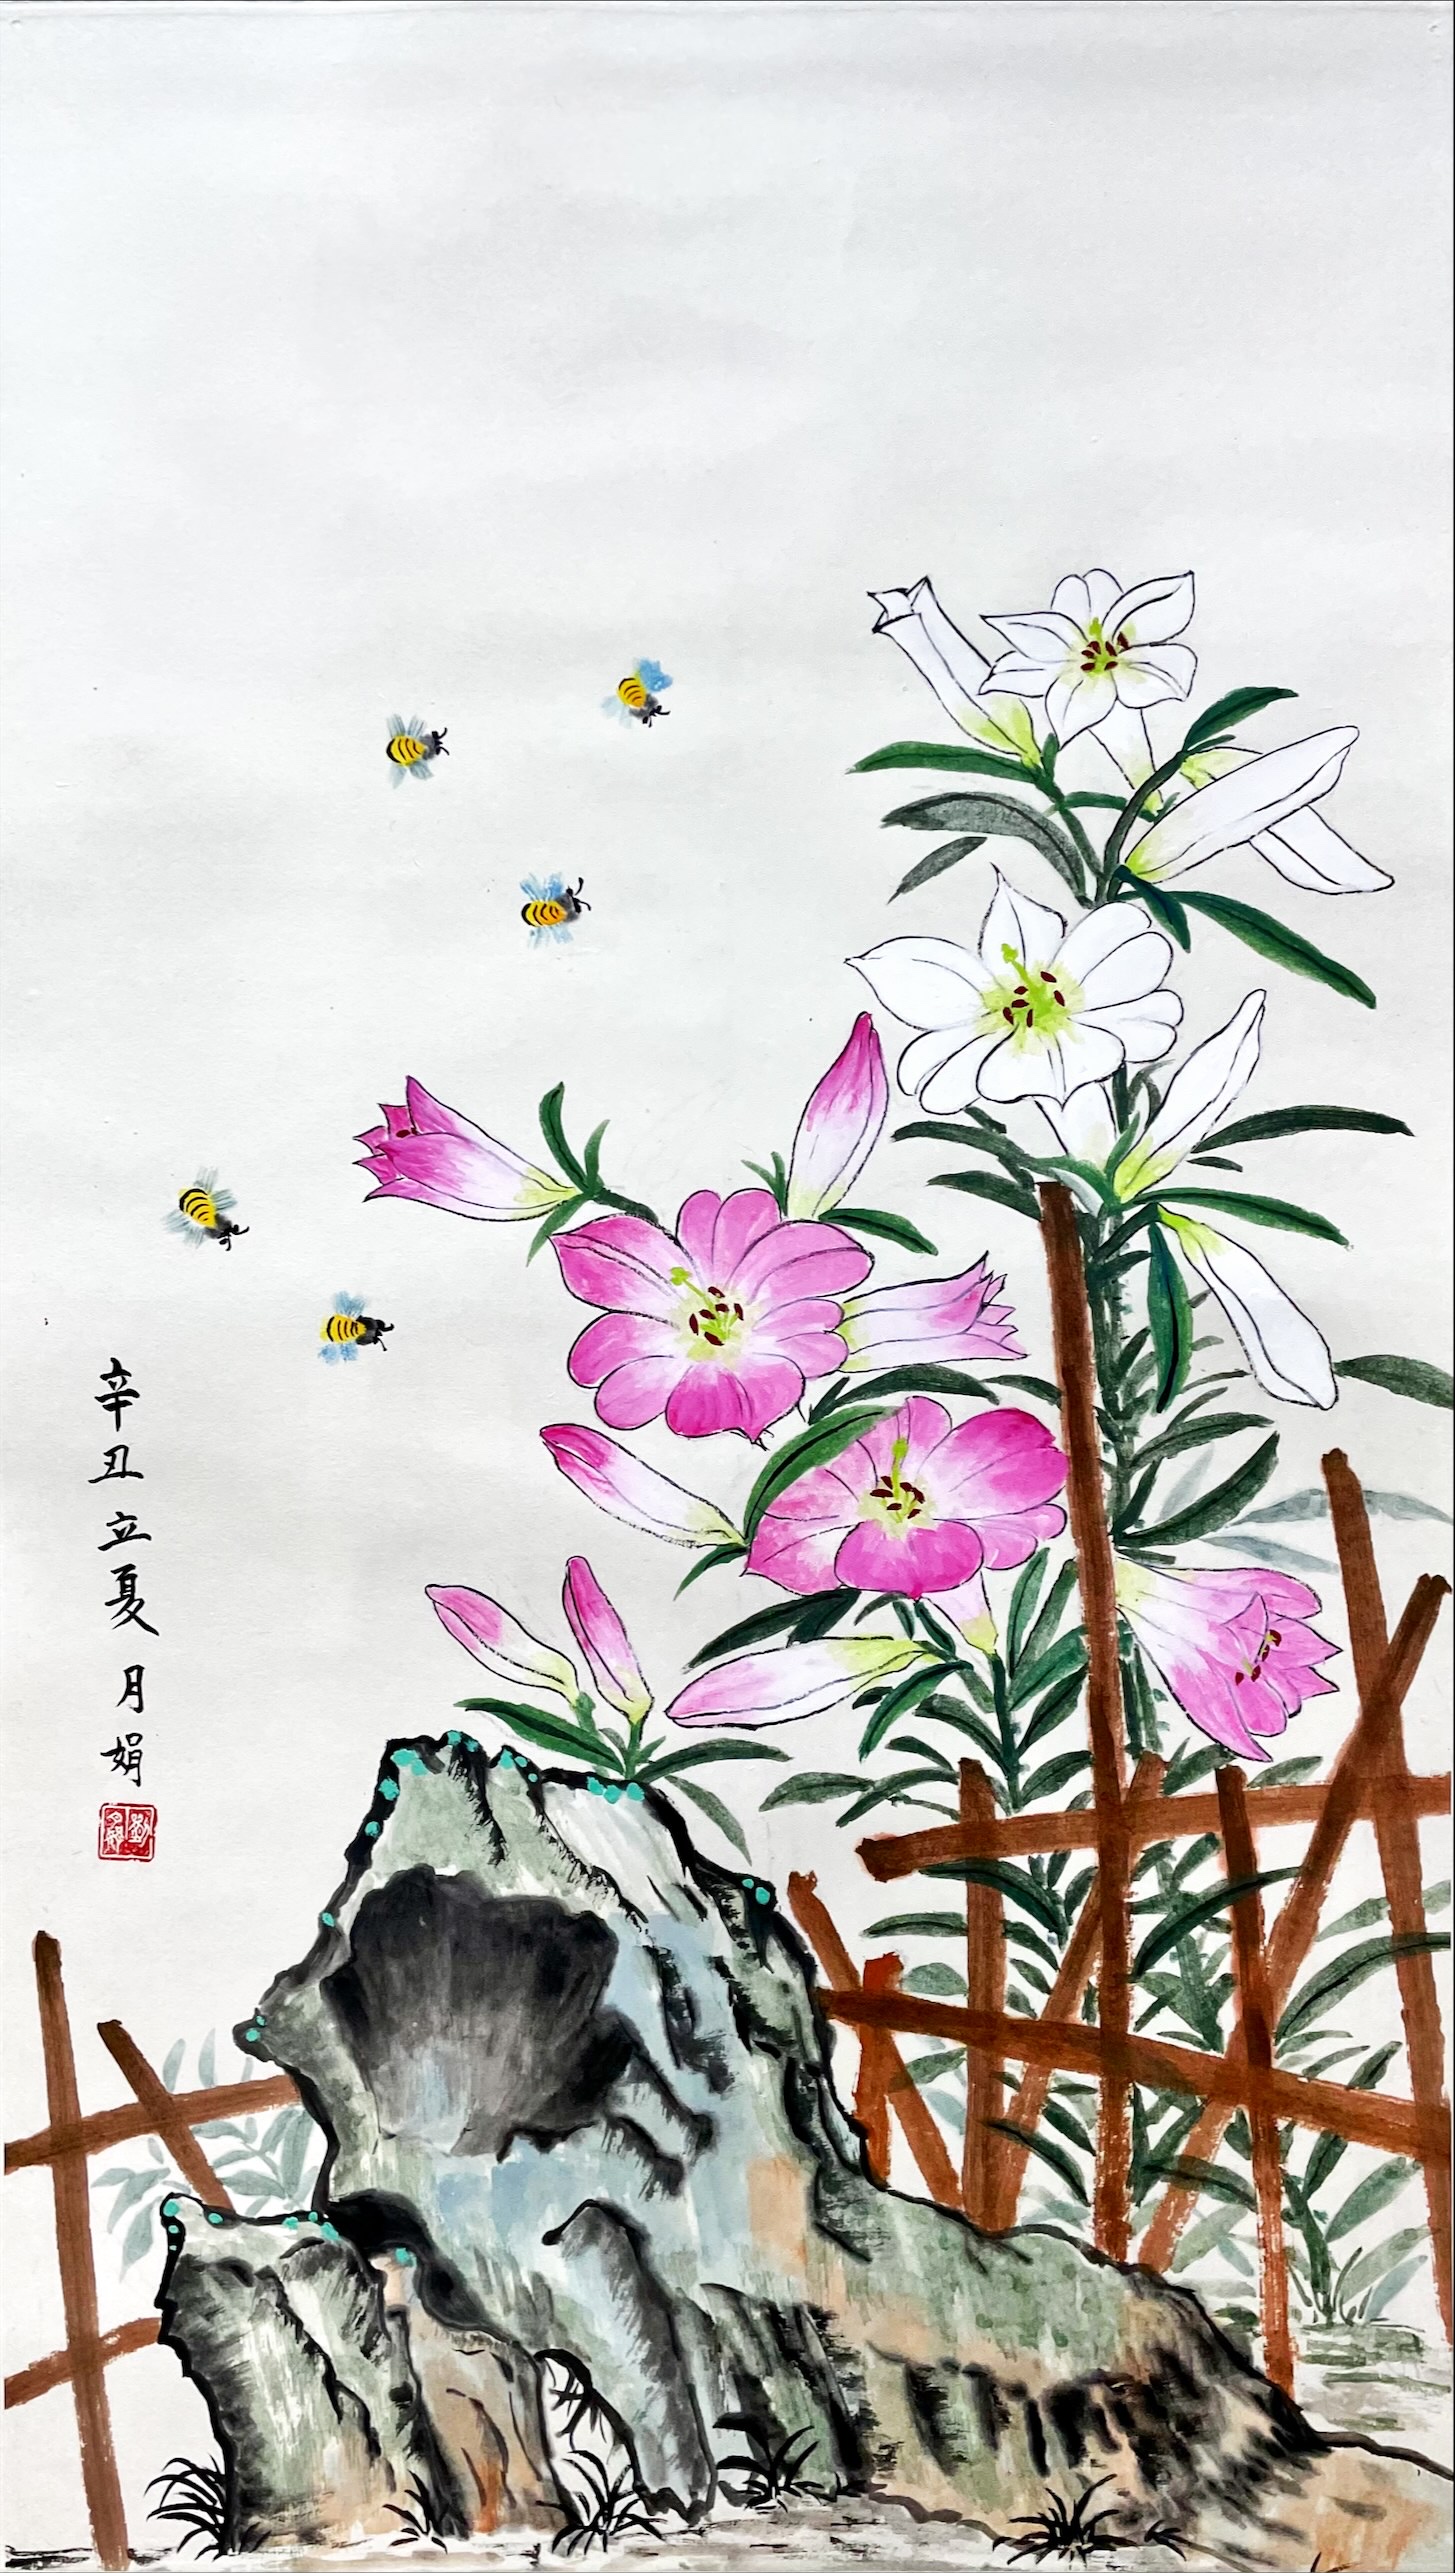 辛丑立夏月娟